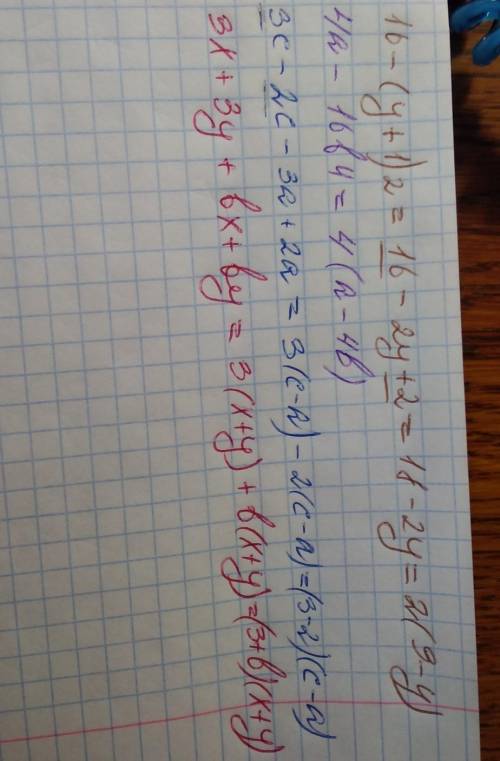 16 - (y + 1)2 = 16 - 2y + 2 = 18 - 2y = 2(9 - y)
4a - 16b4 = 4(a - 4b)
3c - 2c - 3a + 2a = 3(c - a) - 2(c - a) = (3 - 2)(c - a)
3x + 3y + bx + by = 3(x + y) + b(x + y) = (3 + b)(x + y)